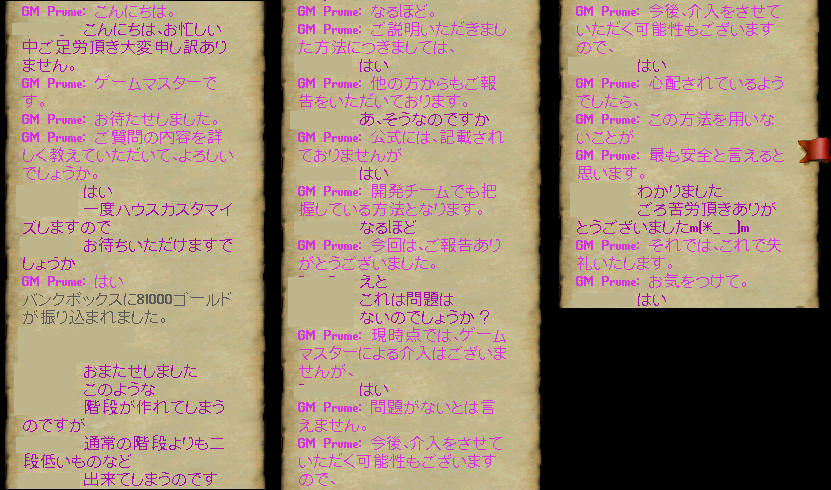 GM Prume: こんにちは。
こんにちは、お忙しい
中ご足労頂き大変申し訳あり
ません。
GM Prume: ゲームマスターで
す。
GM Prume: お待たせしました。
GM Prume: ご質問の内容を詳
しく教えていただいて、よろしい
でしょうか。
はい
一度ハウスカスタマイ
ズしますので
お待ちいただけますで
しょうか
GM Prume: はい
バンクボックスに81000ゴールド
が振り込まれました。
おまたせしました
このような
階段が作れてしまう
のですが
通常の階段よりも二
段低いものなど
出来てしまうのです
GM Prume: なるほど。
GM Prume: ご説明いただきまし
た方法につきましては、
はい
GM Prume: 他の方からもご報
告をいただいております。
あ、そうなのですか
GM Prume: 公式には、記載され
ておりませんが
はい
GM Prume: 開発チームでも把
握している方法となります。
なるほど
GM Prume: 今回は、ご報告あり
がとうございました。
えと
これは問題は
ないのでしょうか?
GM Prume: 現時点では、ゲーム
マスターによる介入はございま
せんが、
はい
GM Prume: 問題がないとは言
えません。
GM Prume: 今後、介入をさせて
いただく可能性もございます
ので、
GM Prume: 今後、介入をさせて
いただく可能性もございます
ので、
はい
GM Prume: 心配されているよう
でしたら、
GM Prume: この方法を用いな
いことが
GM Prume: 最も安全と言えると
思います。
わかりました
ごろ苦労頂きありが
とうございましたm(*_ _)m
GM Prume: それでは、これで失
礼いたします。
GM Prume: お気をつけて。
はい